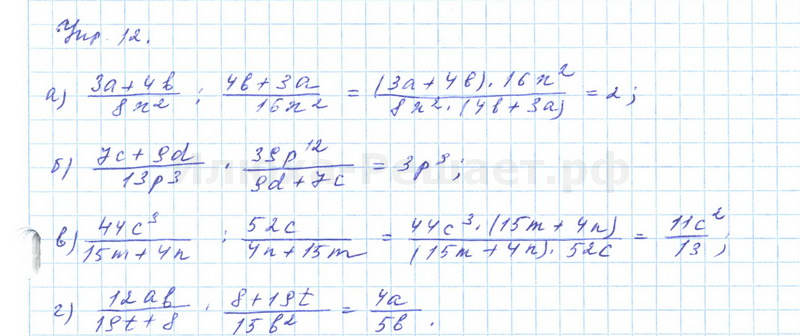 Упр. 12.
а) (3a+4b)/(8x²) : (4b+3a)/(16x²) = ((3a+4b)·16x²)/(8x²·(4b+3a)) = 2;
б) (7c+9d)/(13p3) · (39p¹²)/(9d+7c) = 3p³;
в) (44c³)/(15m+4n) : (52c)/(4n+15m) = (44c³·(15m+4n))/((15m+4n)·52c) = (11c²)/13;
г) (12ab)/(19t+8) · (8+19t)/(15b²) = (4a)/(5b).